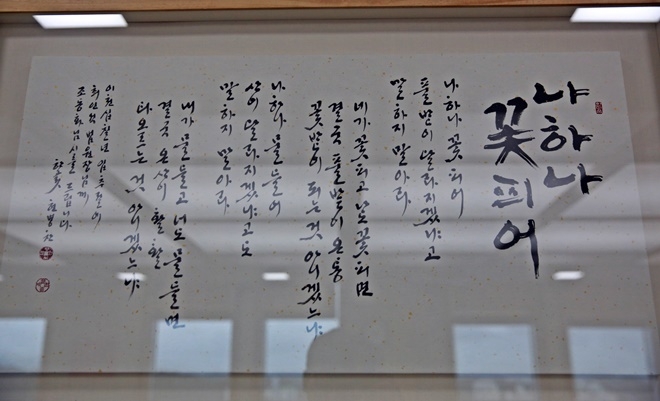 나 하나
꽃 피어
나 하나 꽃 피어
풀밭이 달라지겠냐고
말하지 말아라
네가 꽃 피고 나도 꽃 피면
결국 풀밭이 온통
꽃밭이 되는 것 아니겠느냐
나 하나 물들어
산이 달라지겠냐고도
말하지 말아라
내가 물들고 너도 물들면
결국 온 산이 활활
타오르는 것 아니겠느냐
이천십칠년
최인석 법원장님께
조동화님 드립니다